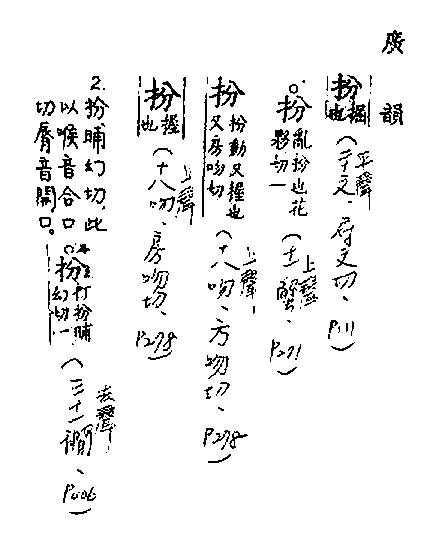 廣韻
扮 握也 (平聲 二十文、府文切、P.111)
扮 亂扮也花夥切一 (上聲 十二蟹、P.271)
扮 扮動又握也又房吻切 (上聲、十八吻、方吻切、P.278)
扮 握也 (上聲 十八吻、房吻切、P.278)
2. 扮晡幻切,此以喉音合口切脣音開口。
扮 打扮晡幻切一 (去聲 三十一襉、P.406)